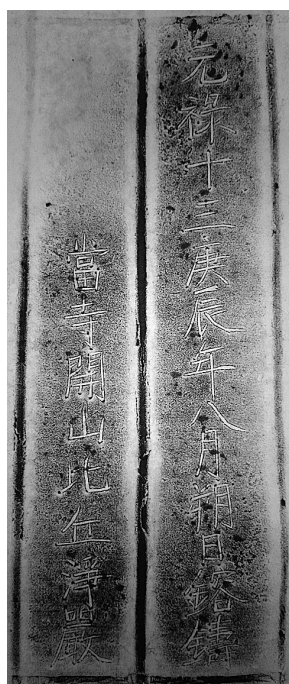 元禄十三庚辰年八月朔日銘鋳
當寺開山比丘淨嚴